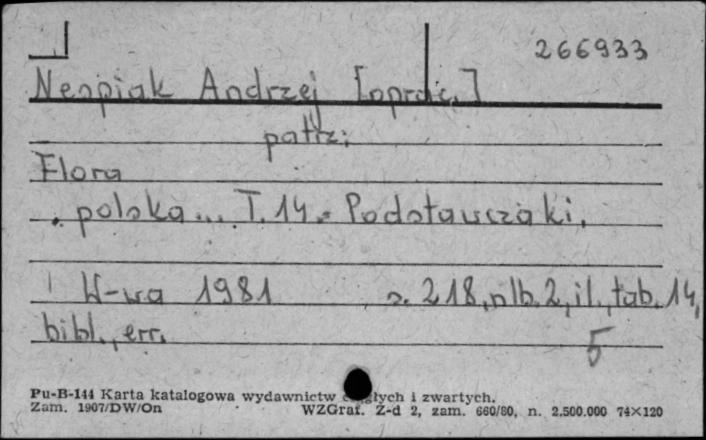 266933
Nespiak Andrzej [oprac.]
patrz:
Flora
polska... T. 14. Podstawczaki.
W-wa 1981 s. 218, nlb. 2, il., tab. 14,
bibl., err.
5
Pu-B-144 Karta katalogowa wydawnictw ciągłych i zwartych.
Zam. 1907/DW/On WZGraf. Z-d 2, zam. 660/80, n. 2.500.000 74×120